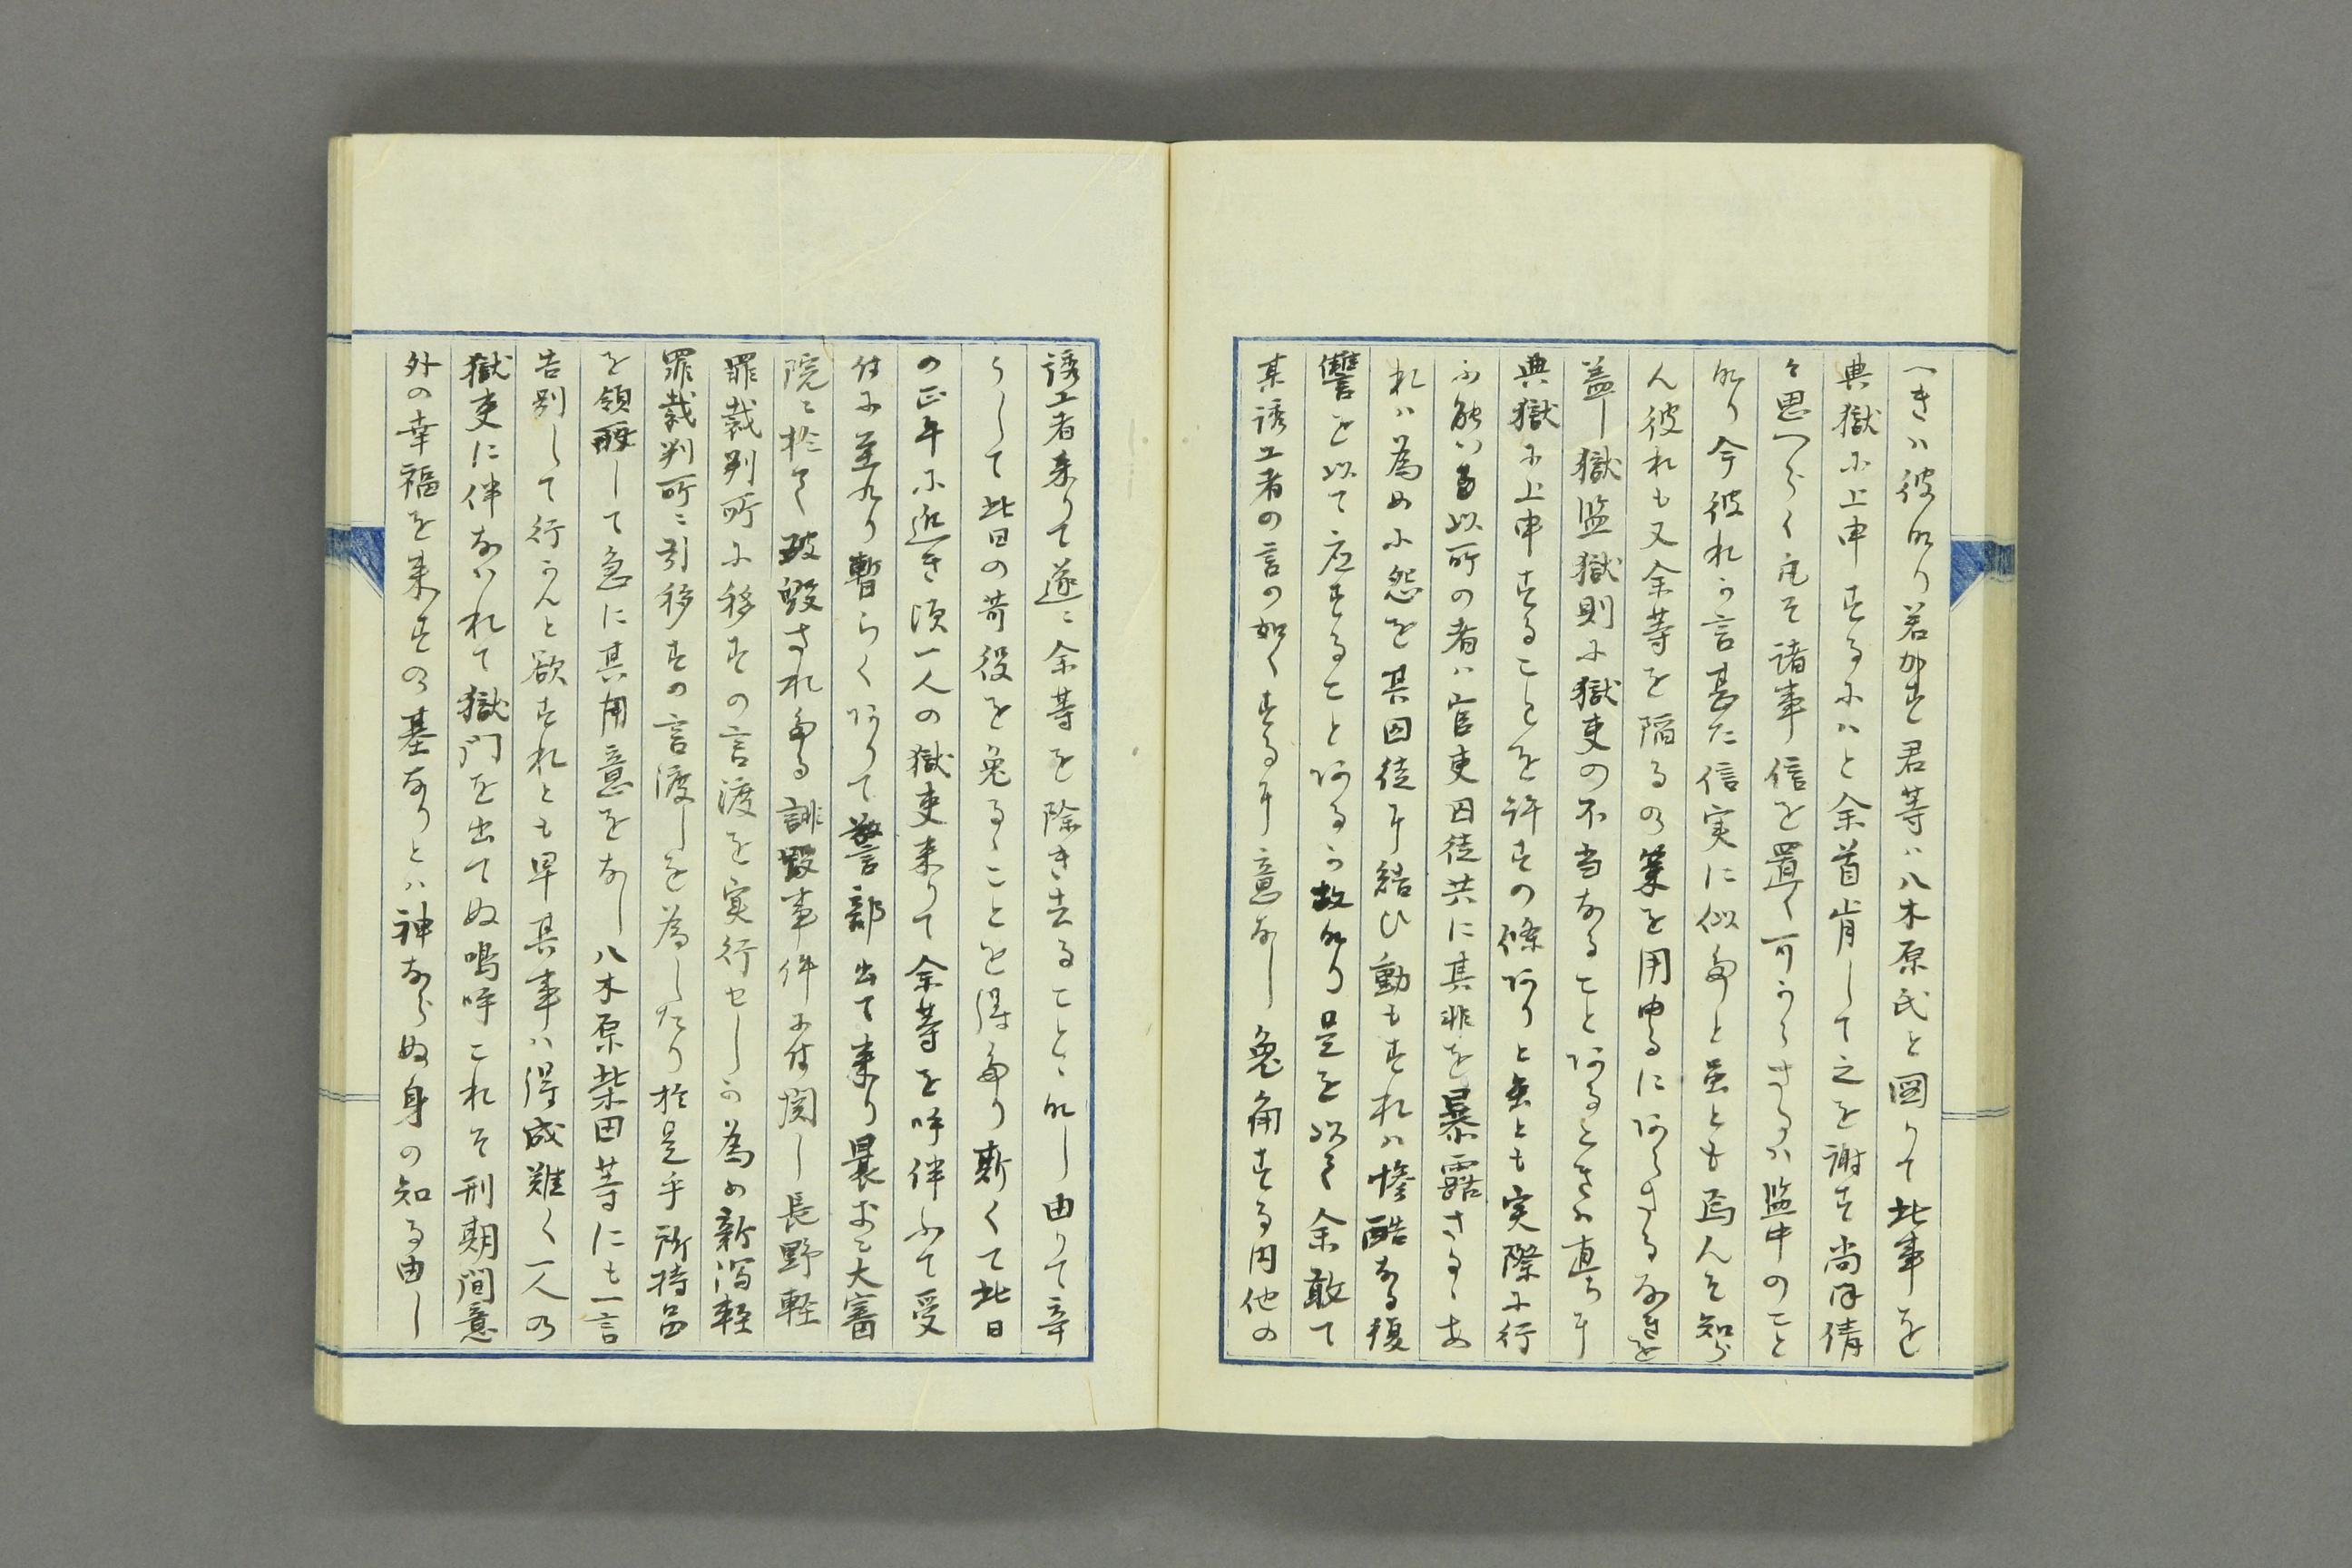 へきハ彼なり若かす君等ハ八木原氏と図りて此事を
典獄に上申するにハと余首肯して之を謝す尚ほ倩
々思へらく凡そ諸事信を置く可からさるハ監中のこと
なり今彼れか言甚た信実に似たりと虽とも焉んそ知ら
ん彼れも又余等を陥るの策を用ゆるにあらさるなきを
蓋し獄監獄則に獄吏の不当なることあるときハ直ちに
典獄に上申することを許すの條ありと虽とも実際に行
ふ能ハ
る以所の者ハ官吏囚徒共に其非を暴露さるゝあ
れハ為めに怨を其囚徒に結ひ動もすれハ惨酷なる複
讐を以て応することあるか故なり是を以て余敢て
某誘工者の言の如くするに意なし兔角する内他の
誘工者来りて遂ニ余等を除き去ることゝなし由りて幸
うして此日の苛役を免るゝことを得たり斯くて此日
の正午に近き頃一人の獄吏来りて余等を呼伴ふて受
付に至れり暫らくありて警部出て来り曩きに大審
院ニ於て破毀され多る誹毀事件に付関し長野軽
罪裁判所に移すの言渡を実行セしか為め新潟軽
罪裁判所ニ引移すの言渡しを為したり於是乎所持品
を領取して急に其用意をなし八木原柴田等にも一言
告別して行かんと欲すれとも早其事ハ得成難く一人の
獄吏に伴なハれて獄門を出てぬ嗚呼これそ刑期間意
外の幸福を来すの基なりとハ神ならぬ身の知る由し